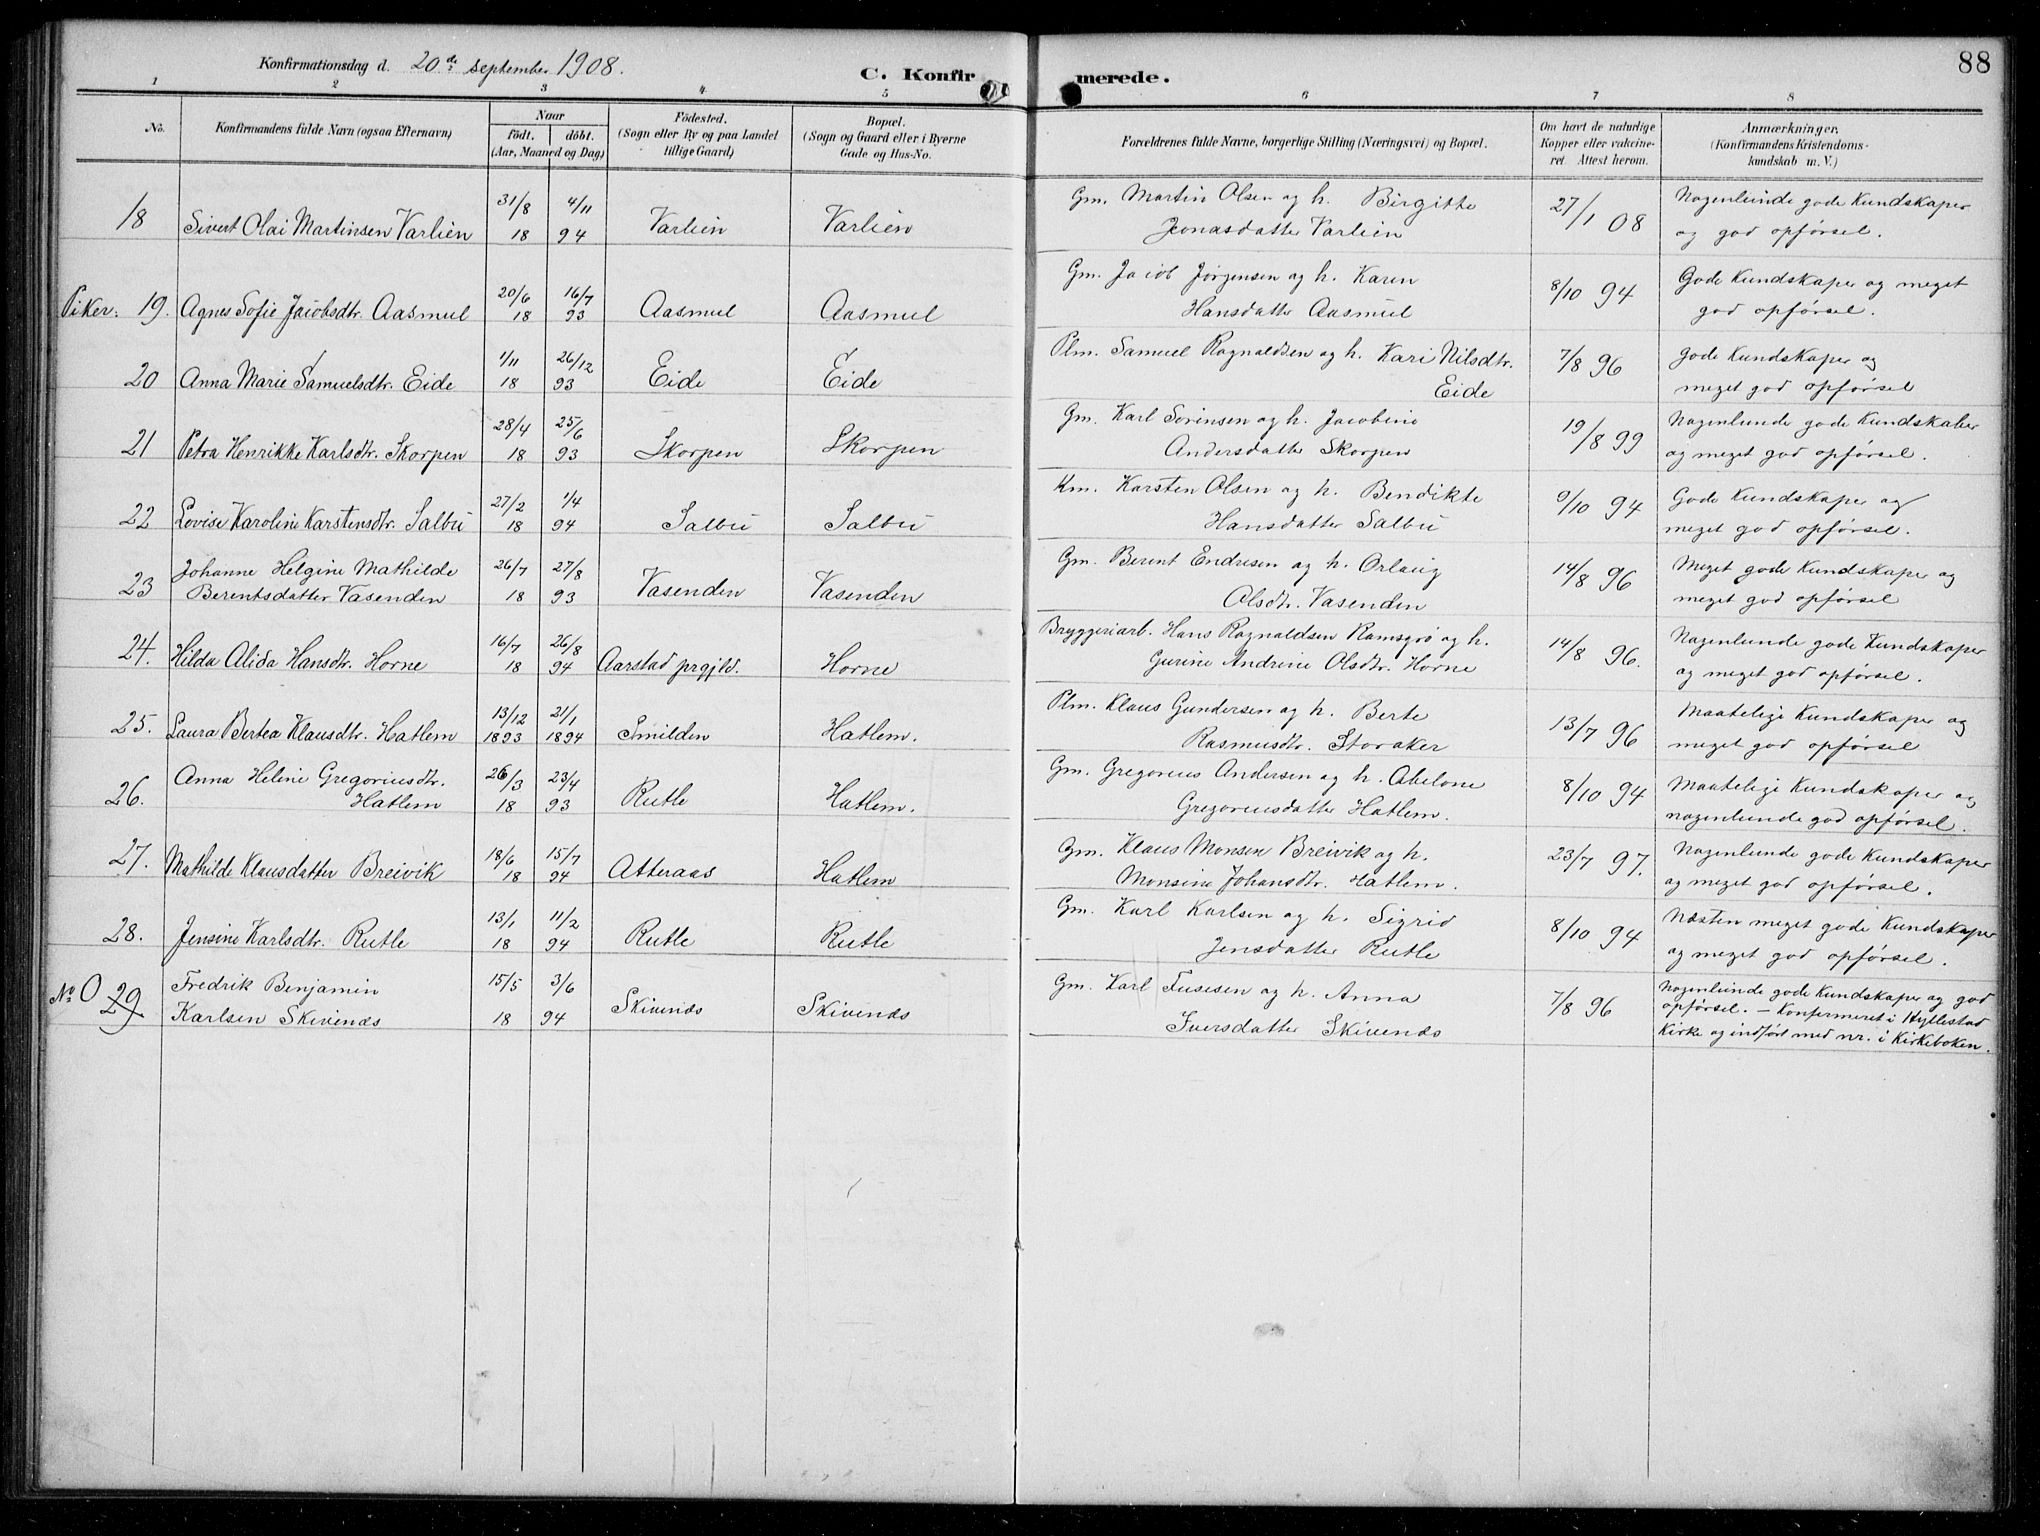 88
Konfirmationsdag d. 20de september 1908.
C. Konfir merede.
1 2 3 4 5 6 7 8
No.
Konfirmandens fulde Navn (ogsaa Efternavn)
Naar
födt. döbt.
(Aar, Maaned og Dag)
Födested.
(Sogn eller By og paa Landet
tillige Gaard)
Bopæl.
(Sogn og Gaard eller i Byerne
Gade og Hus-No.
Forældrenes fulde Navne, borgerlige Stilling (Næringsvei) og Bopæl.
Om havt de naturlige
Kopper eller vakcine-
ret. Attest herom.
Anmærkninger.
(Konfirmandens Kristendoms-
kundskab m. V.)
18 Sivert Olai Martinsen Varlien 31/8 4/11 18 94 Varlien Varlien
Gm. Martin Olsen og h. Birgitte
Jonasdatter Varlien
27/1 08
Nogenlunde gode Kundskaper
og god opførsel.
Piker: 19. Agnes Sofie Jacobsdtr. Aasmul 20/6 16/7 18 93 Aasmul Aasmul
Gm. Jacob Jørgensen og h. Karen
Hansdatter Aasmul
8/10 94
Gode Kundskaper og meget
god opførsel.
20 Anna Marie Samuelsdtr. Eide 1/11 26/12 18 93 Eide Eide
Plm. Samuel Ragnaldsen og h. Kari Nilsdtr.
Eide
7/8 96
Gode Kundskaper og
meget god opførsel
21 Petra Henrikke Karlsdtr. Skorpen 28/4 25/6 18 93 Skorpen Skorpen
Gm. Karl Sørensen og h. Jacobine
Andersdatter Skorpen
19/8 99
Nogenlunde gode Kundskaber
og meget god opførsel.
22 Lovise Karoline Karstensdtr. Salbu 27/2 1/4 18 94 Salbu Salbu
Km. Karsten Olsen og h. Bendikte
Hansdatter Salbu
9/10 94
Gode Kundskaper og
meget god opførsel.
23 Johanne Helgine Mathilde
Berentsdatter Vasenden 26/7 27/8 18 93 Vasenden Vasenden
Gm. Berent Endresen og h. Orlaug
Olsdtr. Vasenden
14/8 96
Meget gode Kundskaper og
meget god opførsel
24. Hilda Alida Hansdtr. Horne 16/7 26/8 18 94 Aarstad prgjld. Horne
Bryggeriarb. Hans Ragnaldsen Ramsgrø og h.
Gurine Andrine Olsdtr. Horne
14/8 96.
Nogenlunde gode Kundskaper
og meget god opførsel.
25. Laura Bertea Klausdtr. Hatlem 13/12 21/1 1893 1894 Smilden Hatlem.
Plm. Klaus Gundersen og h. Berte
Rasmusdtr. Storaker
13/7 96
Maatelige Kundskaper og
meget god opførsel
26. Anna Heline Gregoriusdtr.
Hatlem 26/3 23/4 18 93 Rutle Hatlem.
Gm. Gregorius Andersen og h. Abelone
Gregoriusdatter Hatlem.
8/10 94
Maatelige Kundskaper og
nogenlunde god opførsel.
27. Mathilde Klausdatter Breivik 18/6 15/7 18 94 Atteraas Hatlem
Gm. Klaus Monsen Breivik og h.
Monsine Johansdtr. Hatlem.
23/7 97.
Nogenlunde gode Kundskaper
og meget god opførsel.
28. Jensine Karlsdtr. Rutle 13/1 11/2 18 94 Rutle Rutle
Gm. Karl Karlsen og h. Sigrid
Jensdatter Rutle
8/10 94
Næsten meget gode Kundskaper
og meget god opførsel.
No 0 29 Fredrik Benjamin
Karlsen Skivenes 15/5 3/6 18 94 Skivenes Skivenes
Gm. Karl h. Anna
Iversdatter Skivenes
7/8 96
Nogenlunde gode Kundskaper og god
opførsel. – Konfirmeret i Hyllestad
Kirke og indført med nr. i Kirkeboken.